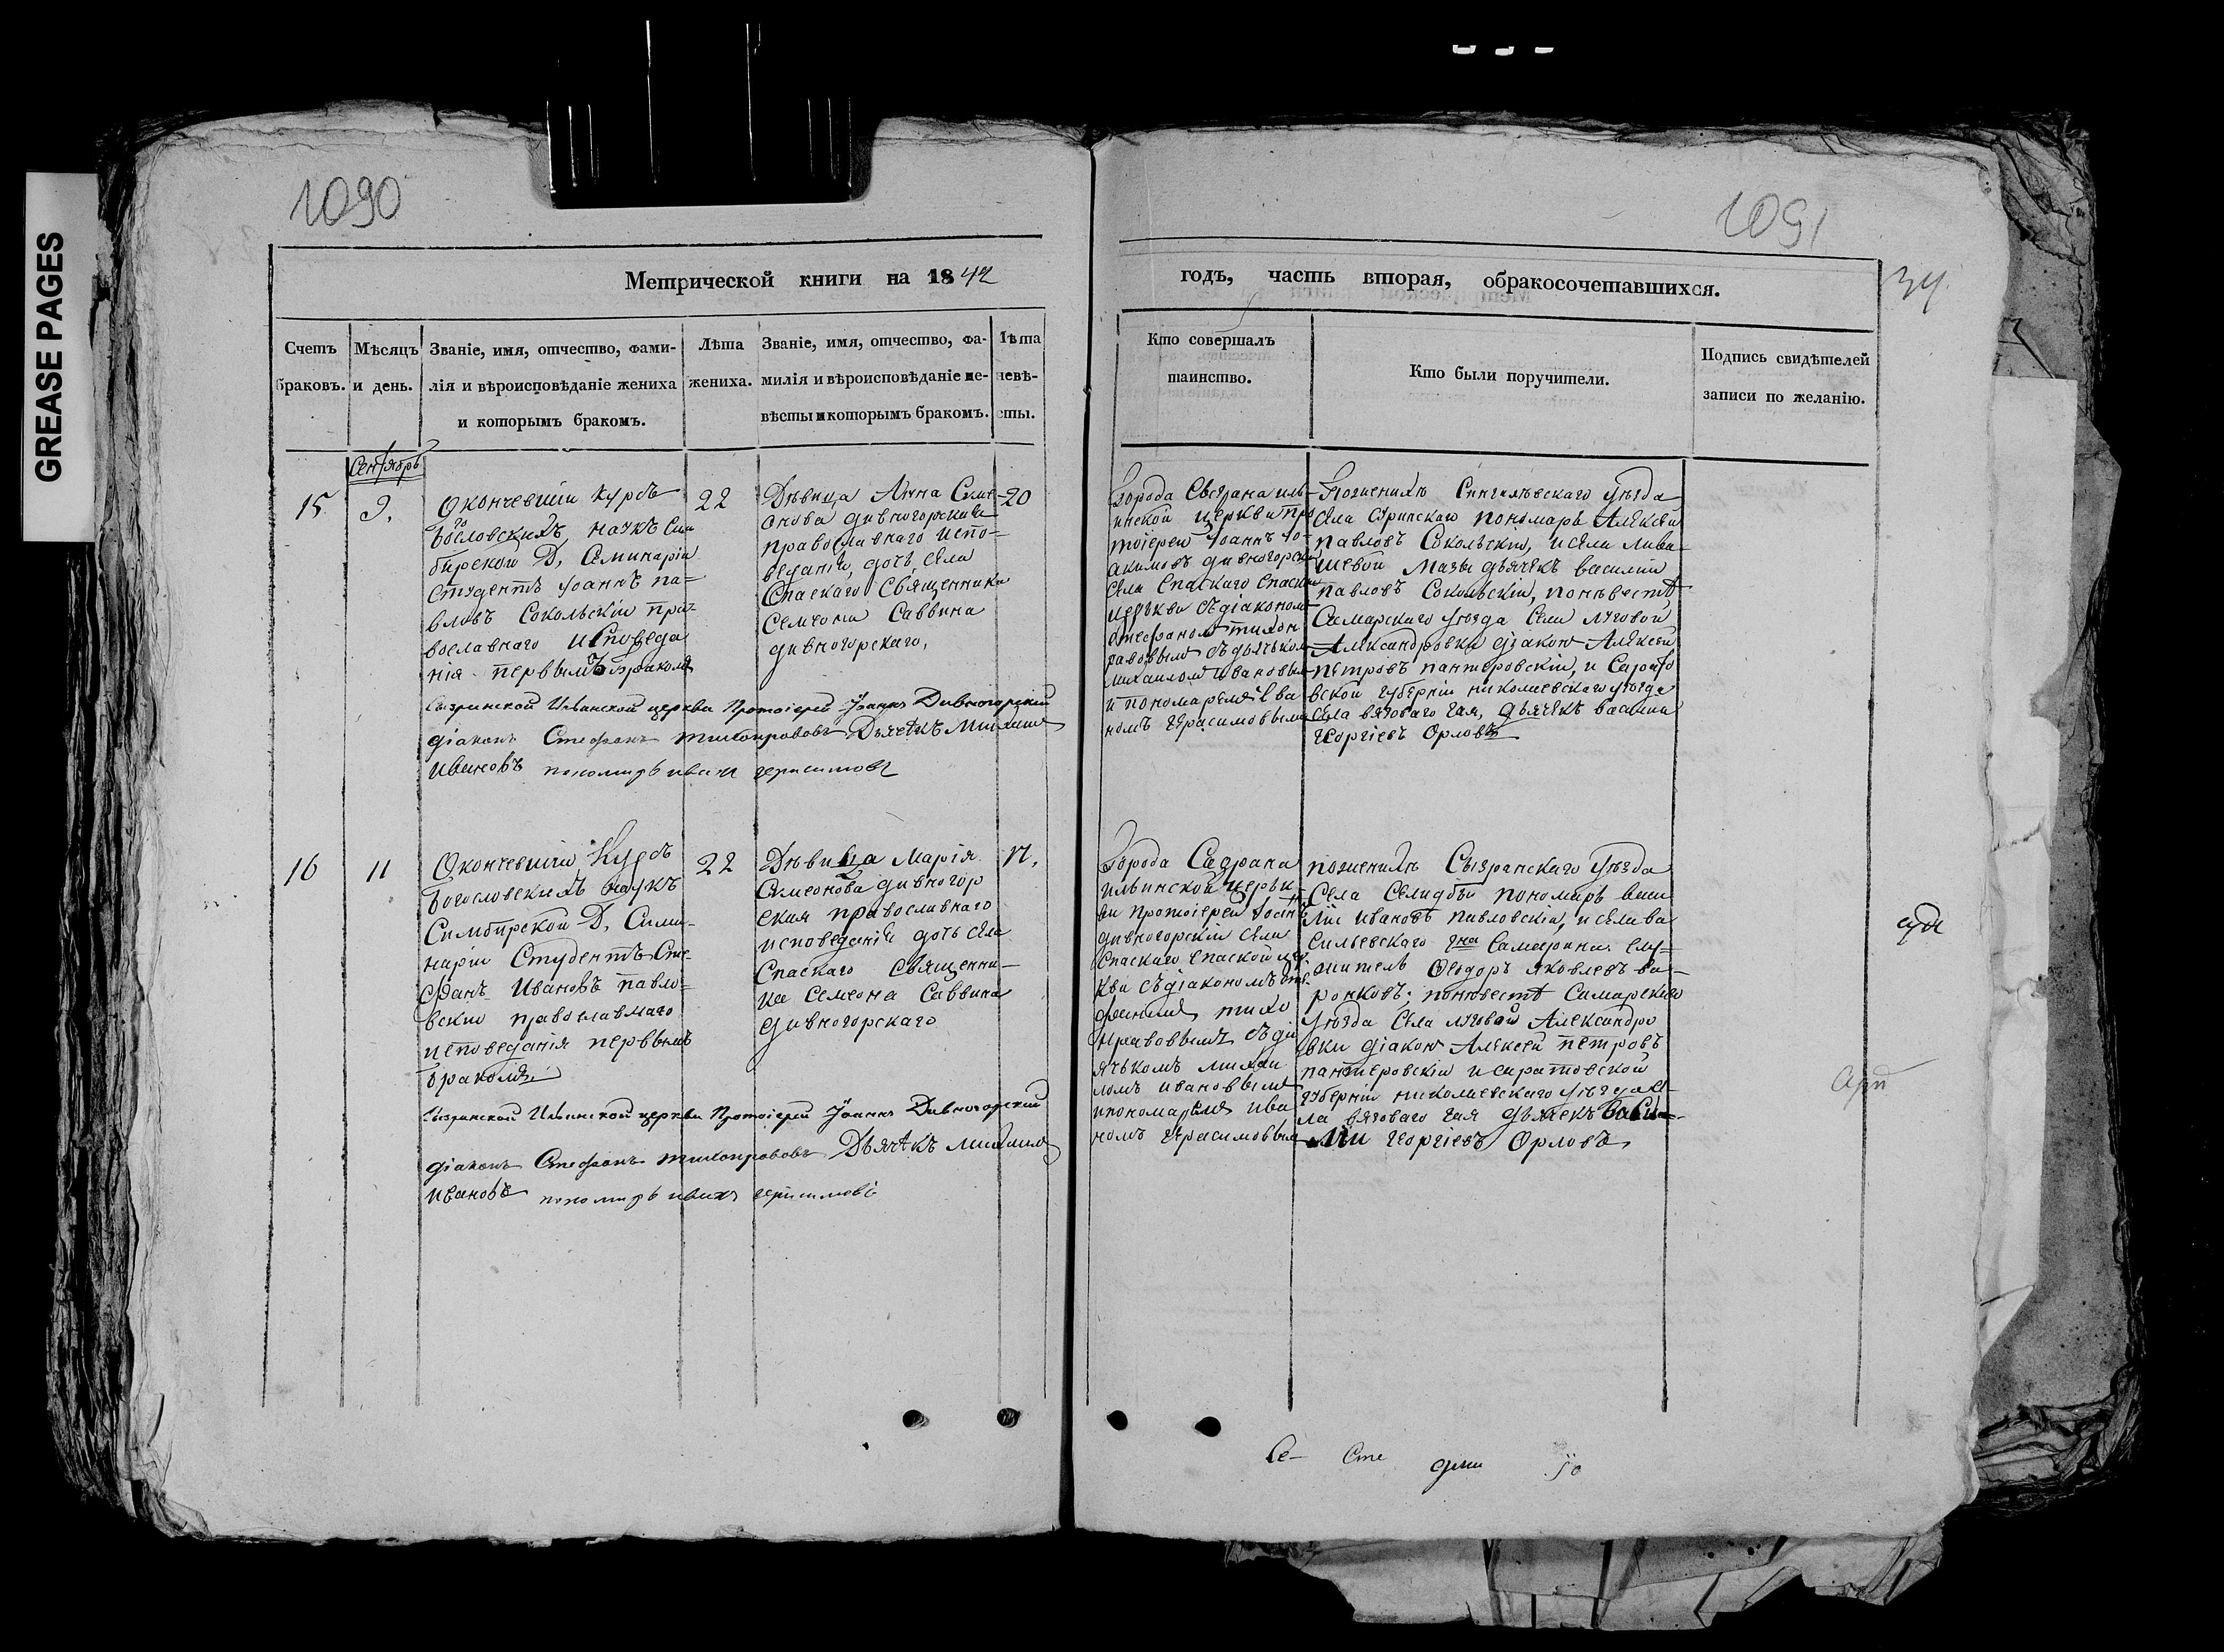 GREASE PAGES
1090
1091
Метрической книги на 1842
годъ, часть вторая, обракосочетавшихся.
34
Счетъ браковъ.
Мѣсяцъ и день.
Званіе, имя, отчество, фами-
лія и вѣроисповѣданіе жениха
и которымъ бракомъ.
Лѣта
жениха.
Званіе, имя, отчество, фа-
милія и вѣроисповѣданіе не-
вѣсты и которымъ бракомъ.
Лѣта
невѣ-
сты.
Кто совершалъ
таинство.
Кто были поручители.
Подпись свидѣтелей
записи по желанію.
Сентябрь
15
9.
Окончевшій курсъ
Богословскихъ наукъ Сим
бирской Д, Семинаріи
Студентъ Іоаннъ па-
вловъ Сокольскій пра-
вославнаго исповеда
нія первымъ бракомъ
22
Дѣвица Анна Симе-
онова дивногорская
православнаго испо-
веданія, дочь села
Спаскаго Священника
Семеона Саввина
дивногорскаго,
20
Города Сызрана иль-
инской церкви про
тоіерей Іоаннъ Іо-
акимовъ дивногорскій
села Спаскаго Спаской
церькви съ діакономъ
Стефаномъ тихон
равовымъ съ дьячькомъ
михаиломъ ивановымъ
и пономаремъ Ива
номъ Герасимовымъ
По женихѣ Сингилѣевскаго уѣзда
села пономарь Алексѣй
павловъ Сокольскій, и села Лива
шевой Мазы дьячекъ василій
павловъ Сокольскій, по невѣстѣ
Самарскаго уѣзда Села луговой
Александровки діаконъ Алексѣй
петровъ пантеровскій, и Сарато
вской губерніи николаевскаго уѣзда
Села вязоваго Гая, дьячекъ василій
Георгіевъ Орловъ
Сызранской Ильинской церкви Протоіерей Іоаннъ Дивногорский
діаконъ Стефанъ тихонравовъ Дьячекъ Михаилъ
Ивановъ пономарь иванъ герасимовъ
16
11
Окончевшій Курсъ
Богословскихъ наукъ
Симбирской Д, Семи-
наріи Студентъ Сте-
фанъ Ивановъ павло-
вскій православнаго
исповеданія первымъ
бракомъ
22
Дѣвица Марія
Симеонова дивногор
ская православнаго
исповеданія дочь села
Спаскаго Священни-
ка Семеона Саввина
дивногорскаго
17.
Города Сызрана
ильинской церьк
ви протоіерей Іоаннъ
дивногорскій села
Спаскаго спаской цер-
кви съ діакономъ Сте-
фаномъ тихо
нравовымъ съ дь
ячькомъ михаи
ломъ ивановымъ
и пономаремъ ива
номъ Герасимовымъ
по женихѣ Сызранскаго уѣзда
Села пономарь васи
лій Ивановъ павловскій, и села ва
сильевскаго гна Самарина слу-
житель Ѳеодоръ яковлевъ во-
ронковъ; по невѣстѣ Самарскаго
уѣзда Села луговой Александро
вки діаконъ Алексѣй петровъ
пантеровскій и саратовской
губерніи николаевскаго уѣзда се
ла вязоваго гая дьячекъ васи-
лій Георгіевъ Орловъ
Сызранской Ильинской церкви Протоіерей Іоаннъ Дивногорский
діаконъ Стефанъ тихонравовъ Дьячекъ михаилъ
Ивановъ пономарь иванъ герасимовъ
Се- Сте